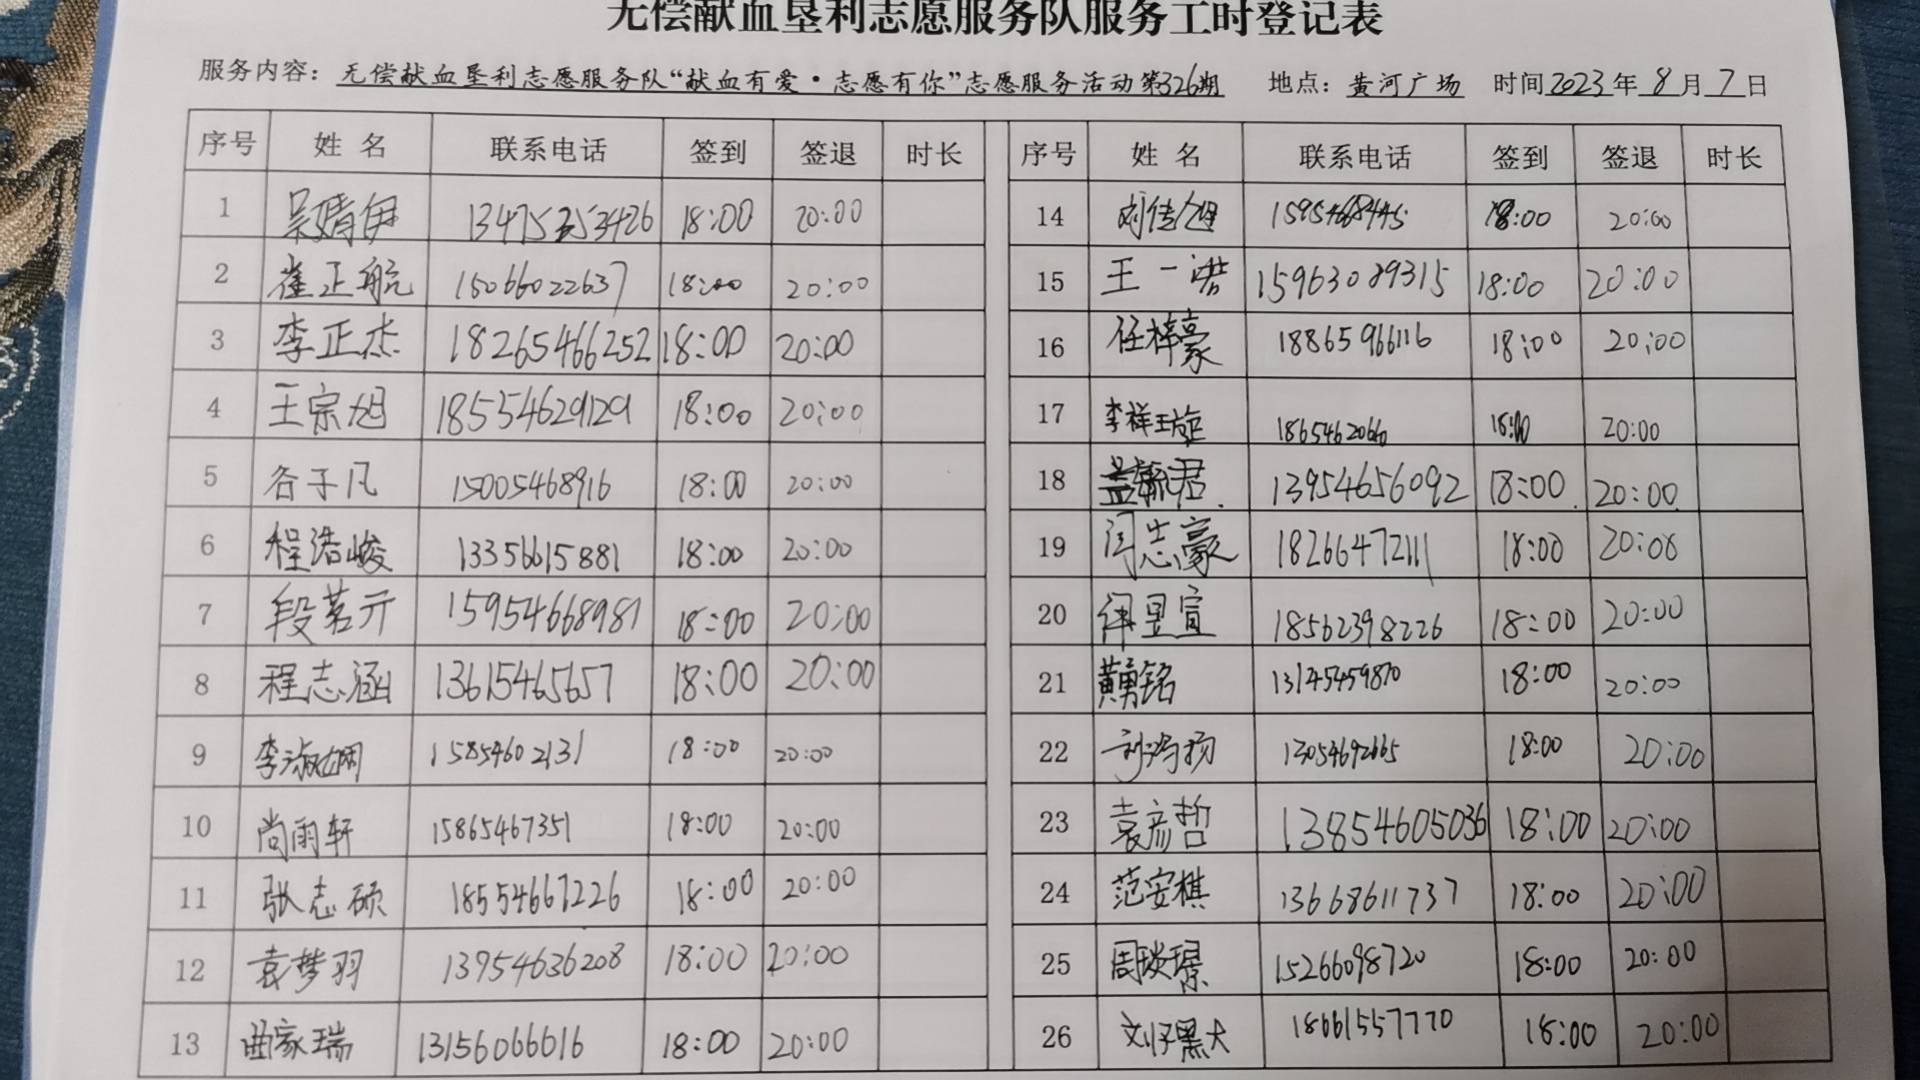 无偿献血垦利志愿服务队服务工时登记表
服务内容：无偿献血垦利志愿服务队“献血有爱·志愿有你”志愿服务活动第326期 地点：黄河广场 时间2023年8月7日
序号 姓名 联系电话 签到 签退 时长 序号 姓名 联系电话 签到 签退 时长
1 吴婧伊 18:00 20:00 14 刘佳旭 18:00 20:00
2 崔正航 15066022637 18:00 20:00 15 王一诺 15963089315 18:00 20:00
3 李正杰 18265466252 18:00 20:00 16 任梓豪 18865966116 18:00 20:00
4 王宗旭 18554629129 18:00 20:00 17 李祥瑞 18:00 20:00
5 谷子凡 15005468916 18:00 20:00 18 盖毓君 13954656092 18:00 20:00
6 程浩峻 13356615881 18:00 20:00 19 闫志豪 18266472111 18:00 20:00
7 段茗亓 15954668981 18:00 20:00 20 昱宣 18562398226 18:00 20:00
8 程志涵 13615465657 18:00 20:00 21 黄勇铭 13145459870 18:00 20:00
9 李淑娴 15854602131 18:00 20:00 22 刘鸿扬 13054692665 18:00 20:00
10 尚雨轩 15865467351 18:00 20:00 23 袁彦哲 13854605036 18:00 20:00
11 张志硕 18554667226 18:00 20:00 24 范安棋 13668611737 18:00 20:00
12 袁梦羽 13954636208 18:00 20:00 25 周琰璟 15266098720 18:00 20:00
13 曲家瑞 13156066616 18:00 20:00 26 18661557770 18:00 20:00